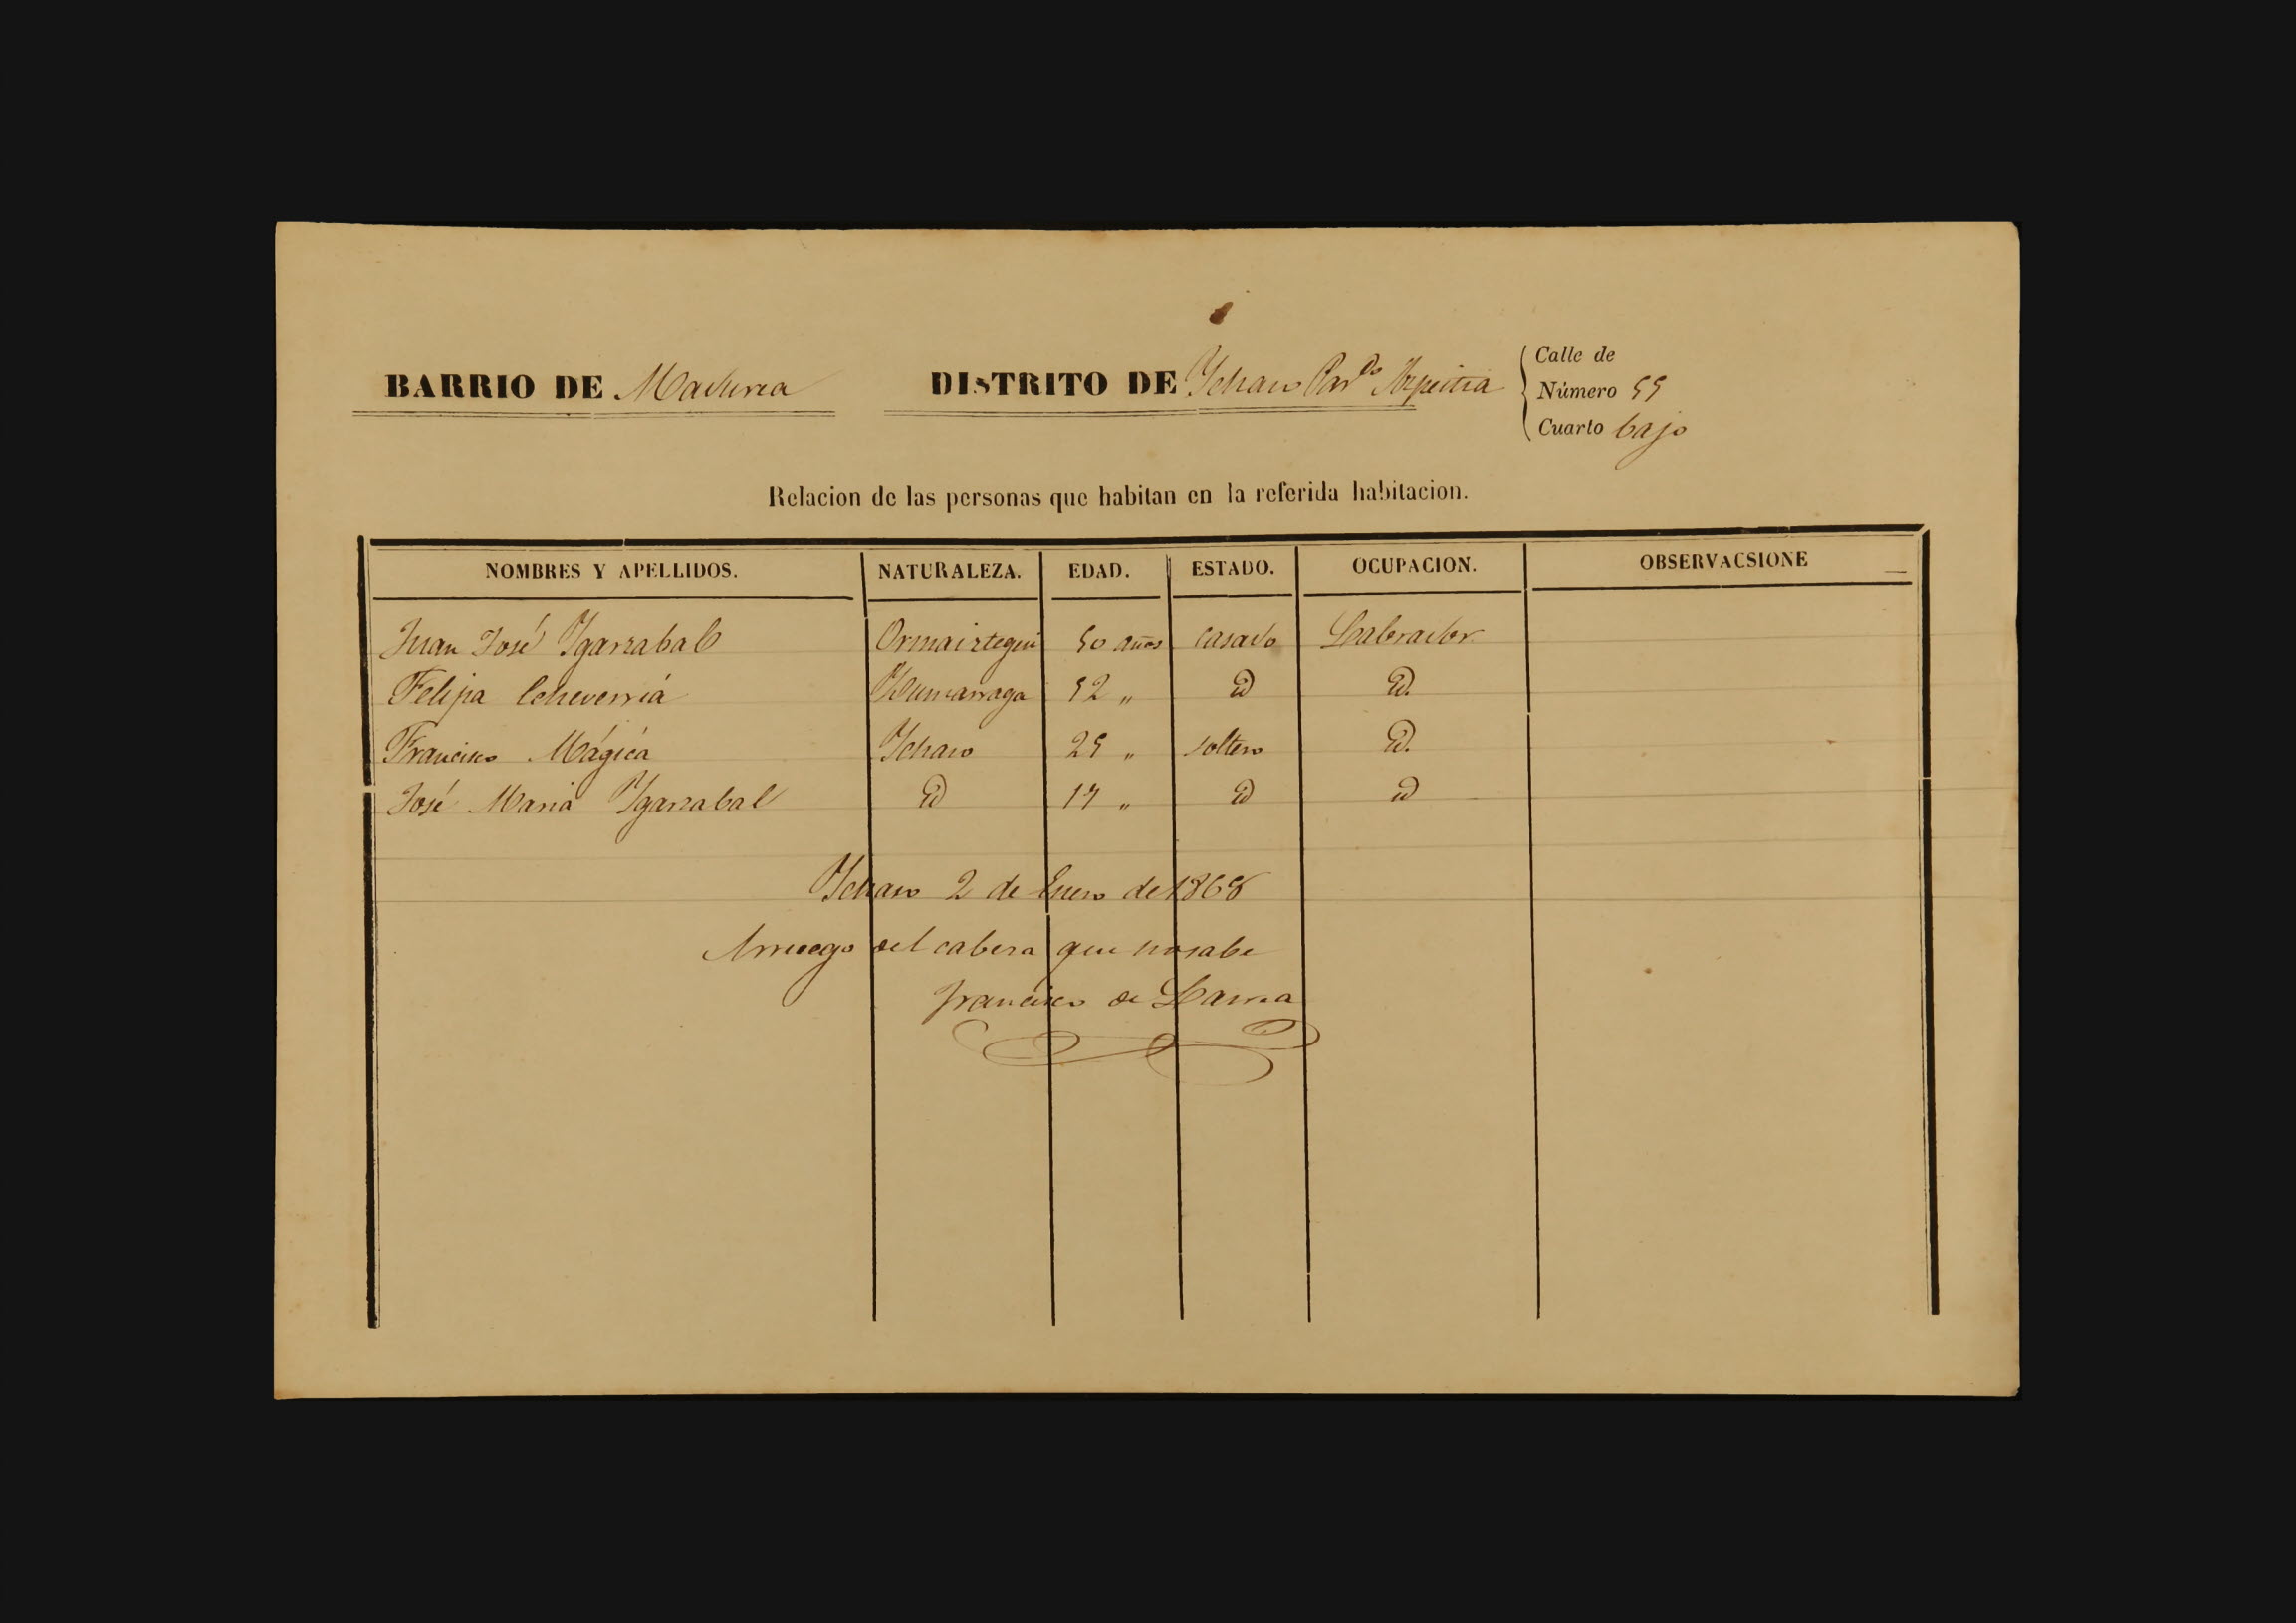 BARRIO DE Madurea DISTRITO DE Ychaso Par.do Azpeitia
Calle de
Número 55
Cuarto bajo
Relacion de las personas que habitan en la referida habitacion.
NOMBRES Y APELLIDOS. NATURALEZA. EDAD. ESTADO. OCUPACION. OBSERVACSIONE
Juan José Ygarzabal Ormaiztegui 50 años casado Labrador
Felipa Echeverriá 52 " id id.
Francisco Mágica Ychaso 25 " soltero id.
José Maria Ygarzabal id 17 " id id
Ychaso 2 de Enero de 1868
Arruego del cabeza que no sabe
Francisco de